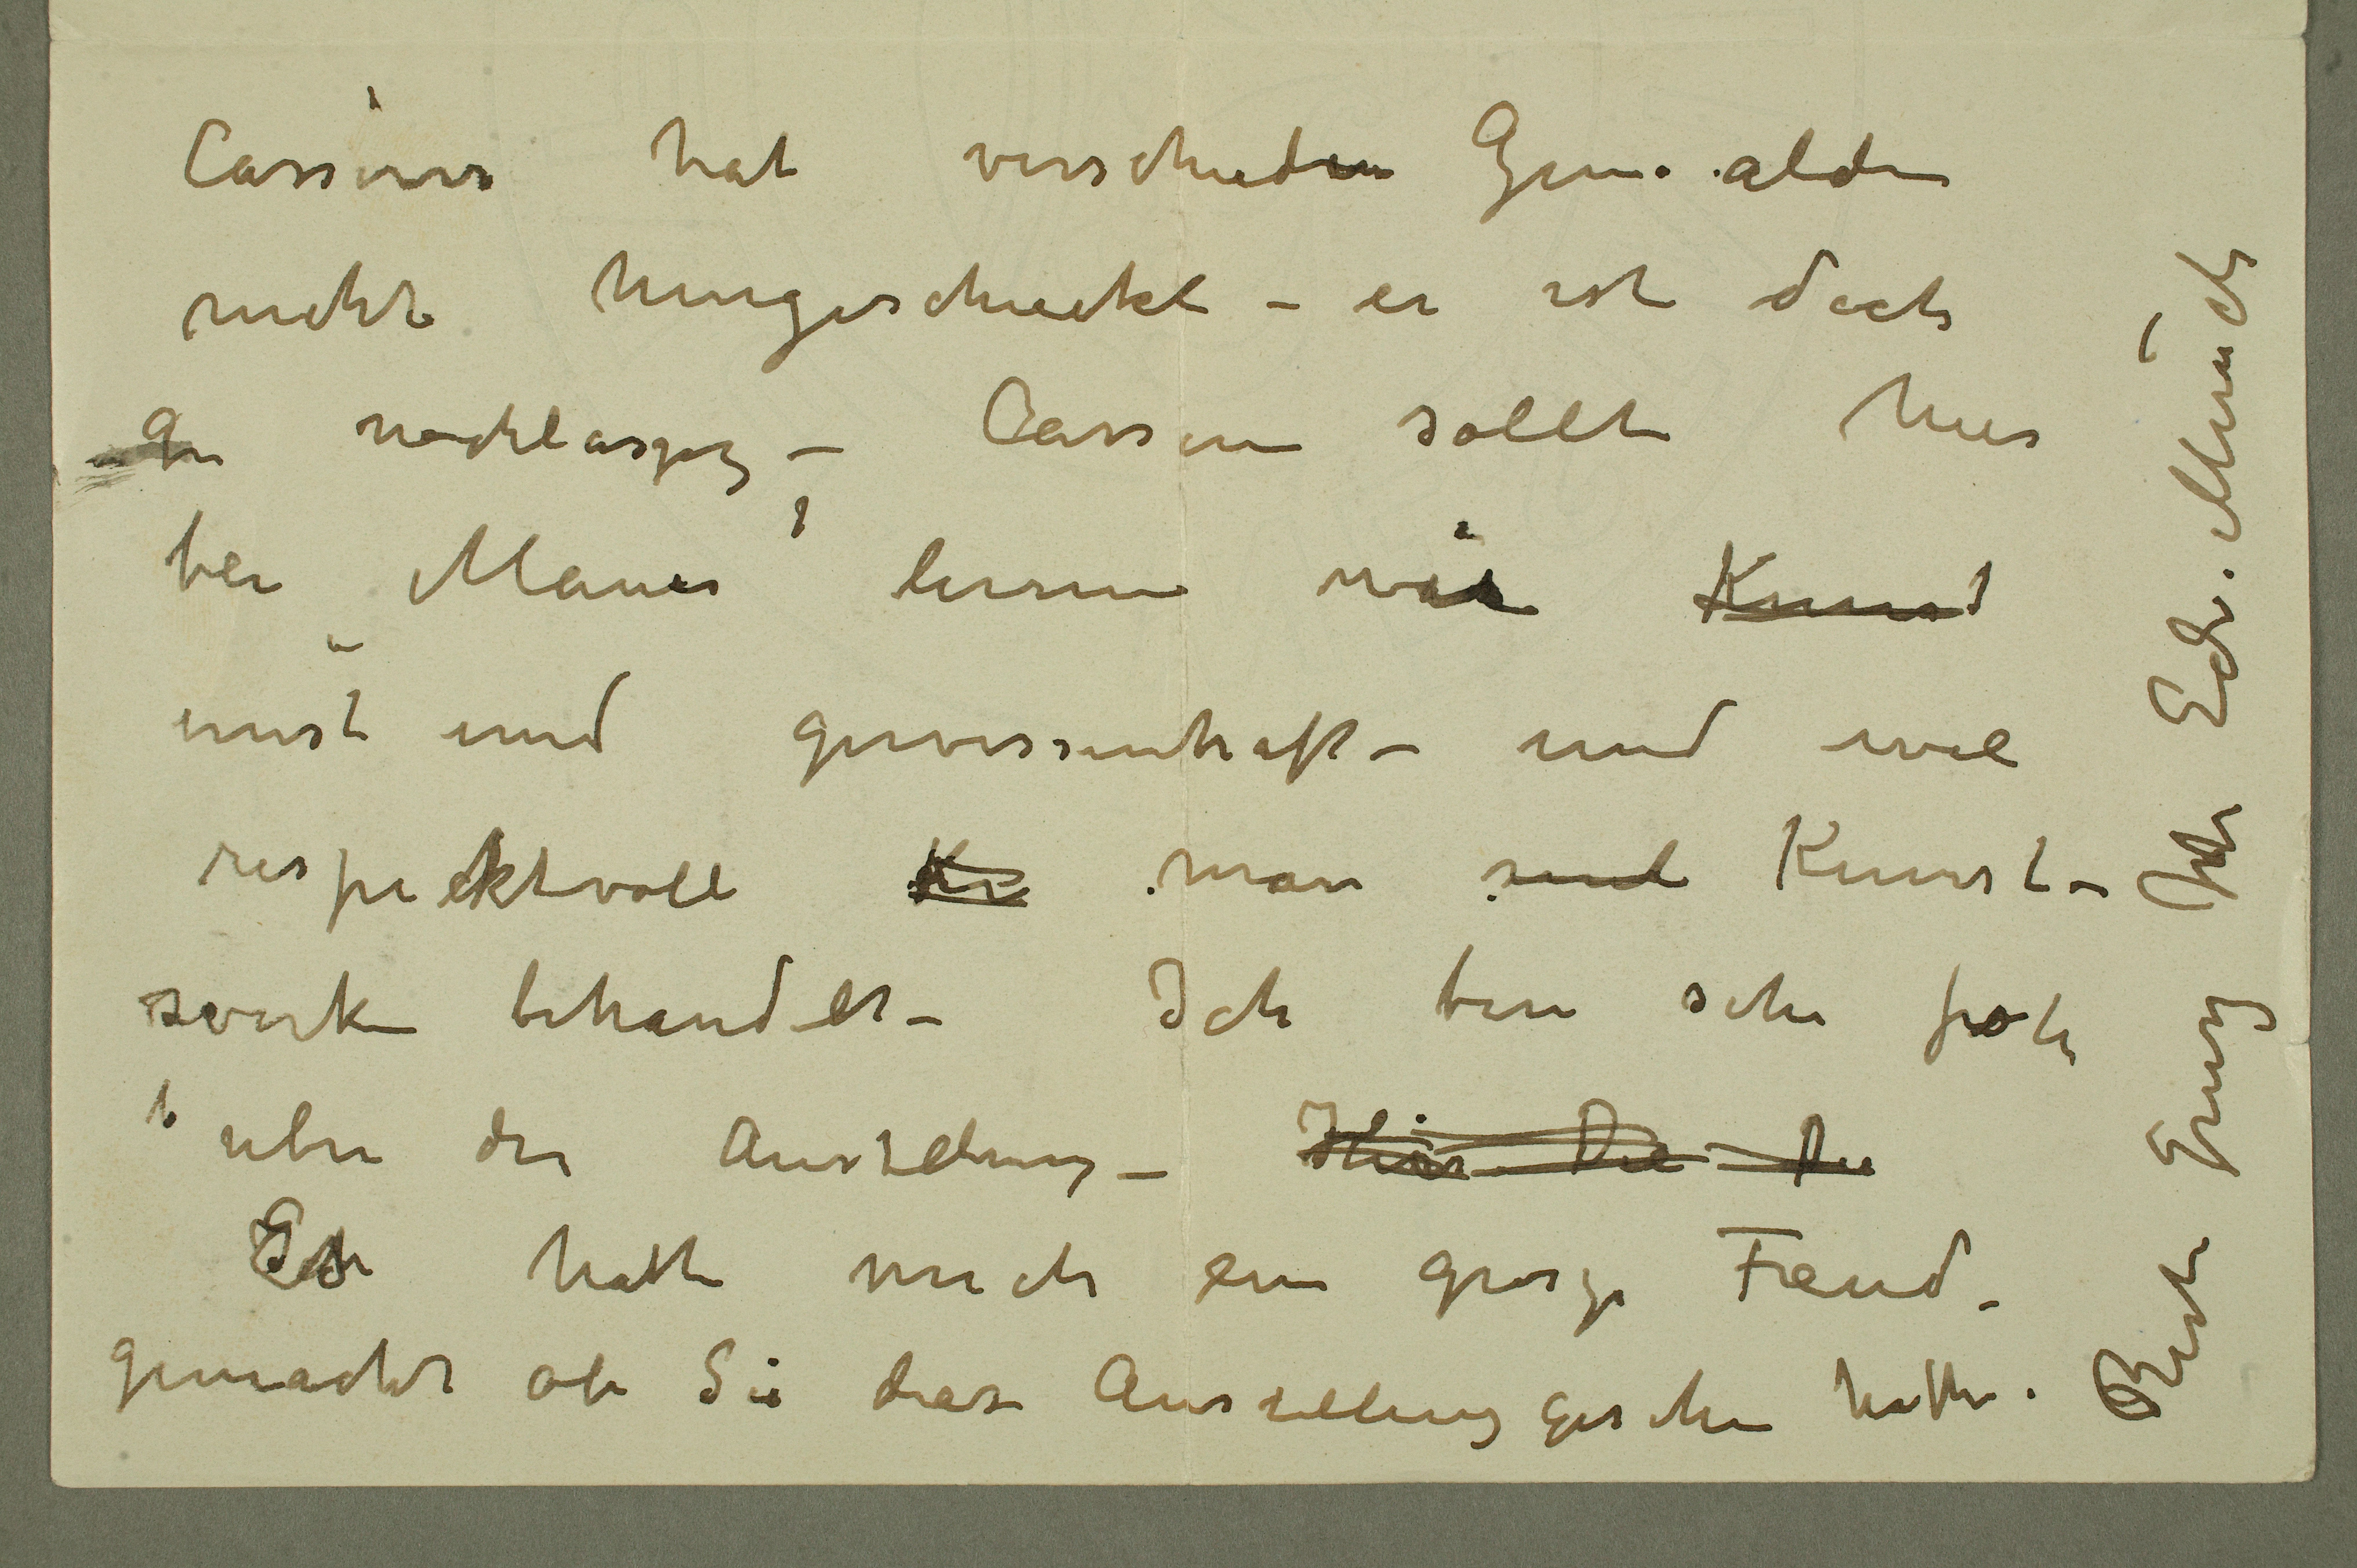 Cassirer hat verschieden Gemälden
nicht hingeschickt – er ist doch
zu nachläszig – Cassirer sollte hier
bei Manes lernen wie ~~Kunst~~
ernst und gewissenhaft – und wie
respektvoll ~~Kr~~ man ~~sind~~ Kunst-
werke behandelt – Ich bin sehr froh
über der Austelung – ~~Die~~ ~~Die~~
Es hatte mich ein grosze Freud
gemacht ob Sie diese Austellung gesehen hatte.
Beste Grusz Ihr Edv. Munch